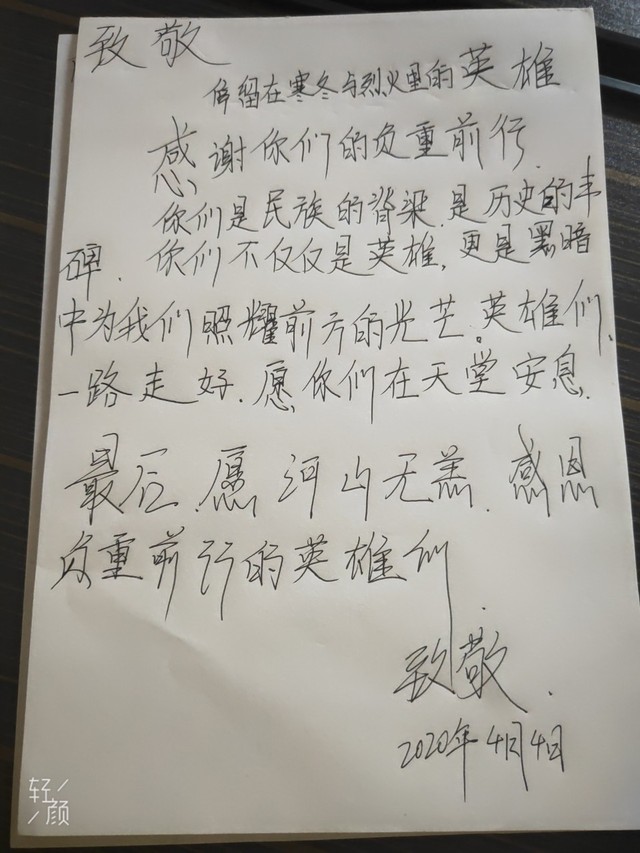 致敬
停留在寒冬与烈火里的英雄
感谢你们的负重前行.
你们是民族的脊梁.是历史的丰
碑.你们不仅仅是英雄,更是黑暗
中为我们照耀前方的光芒。英雄们,
一路走好.愿你们在天堂安息.
最后.愿河山无恙.感恩
负重前行的英雄们.
致敬.
2020年4月4日
轻颜